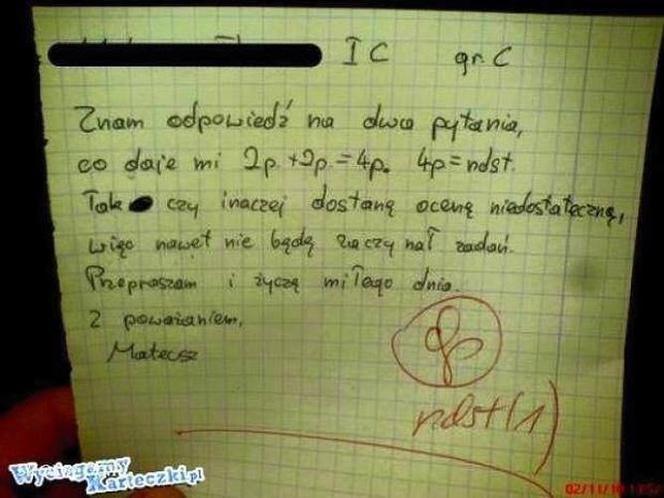 I C gr. C
Znam odpowiedź na dwa pytania,
co daje mi 2p. +2p. = 4p. 4p = ndst.
Tak czy inaczej dostanę ocenę niedostateczną,
więc nawet nie będę zaczynał zadań.
Przepraszam i życzę miłego dnia.
Z poważaniem,
Mateusz
0p
ndst(1)
Wyciagamy
Karteczki.pl